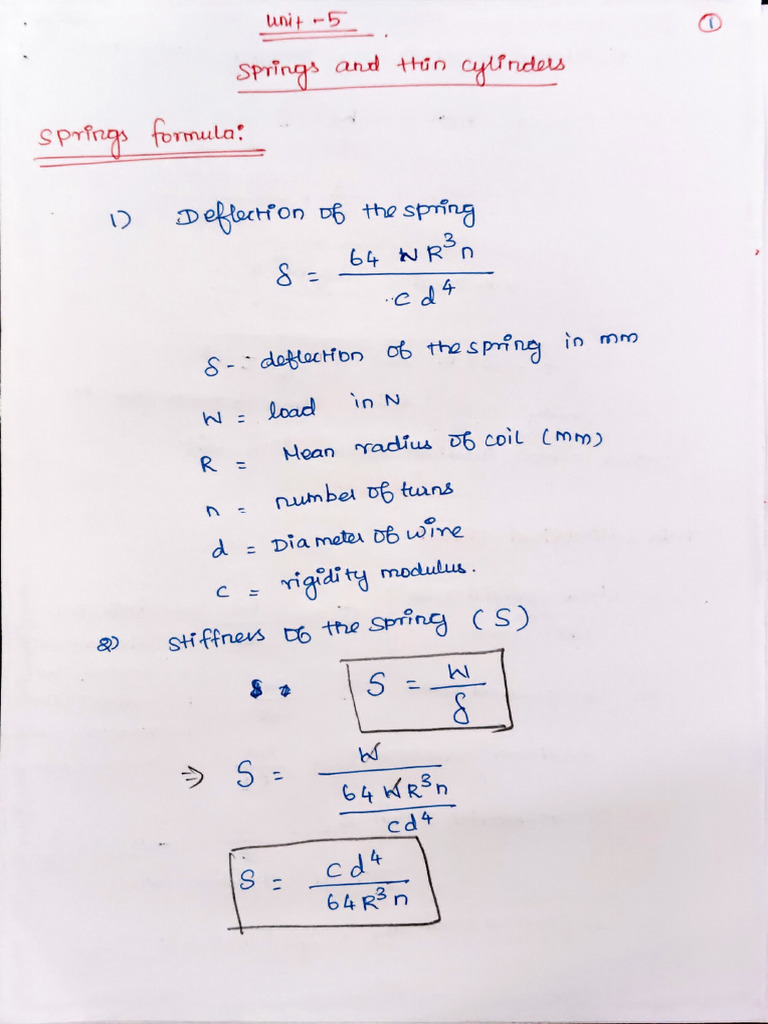 Unit - 5
①
Springs and thin cylinders
Springs formula:
1) Deflection of the spring
δ = 64 W R³ n / c d⁴
δ - deflection of the spring in mm
W = load in N
R = Mean radius of coil (mm)
n = number of turns
d = Diameter of wire
c = rigidity modulus.
2) Stiffness of the spring (S)
S = W / δ
⇒ S = W / (64 W R³ n / c d⁴)
S = c d⁴ / 64 R³ n